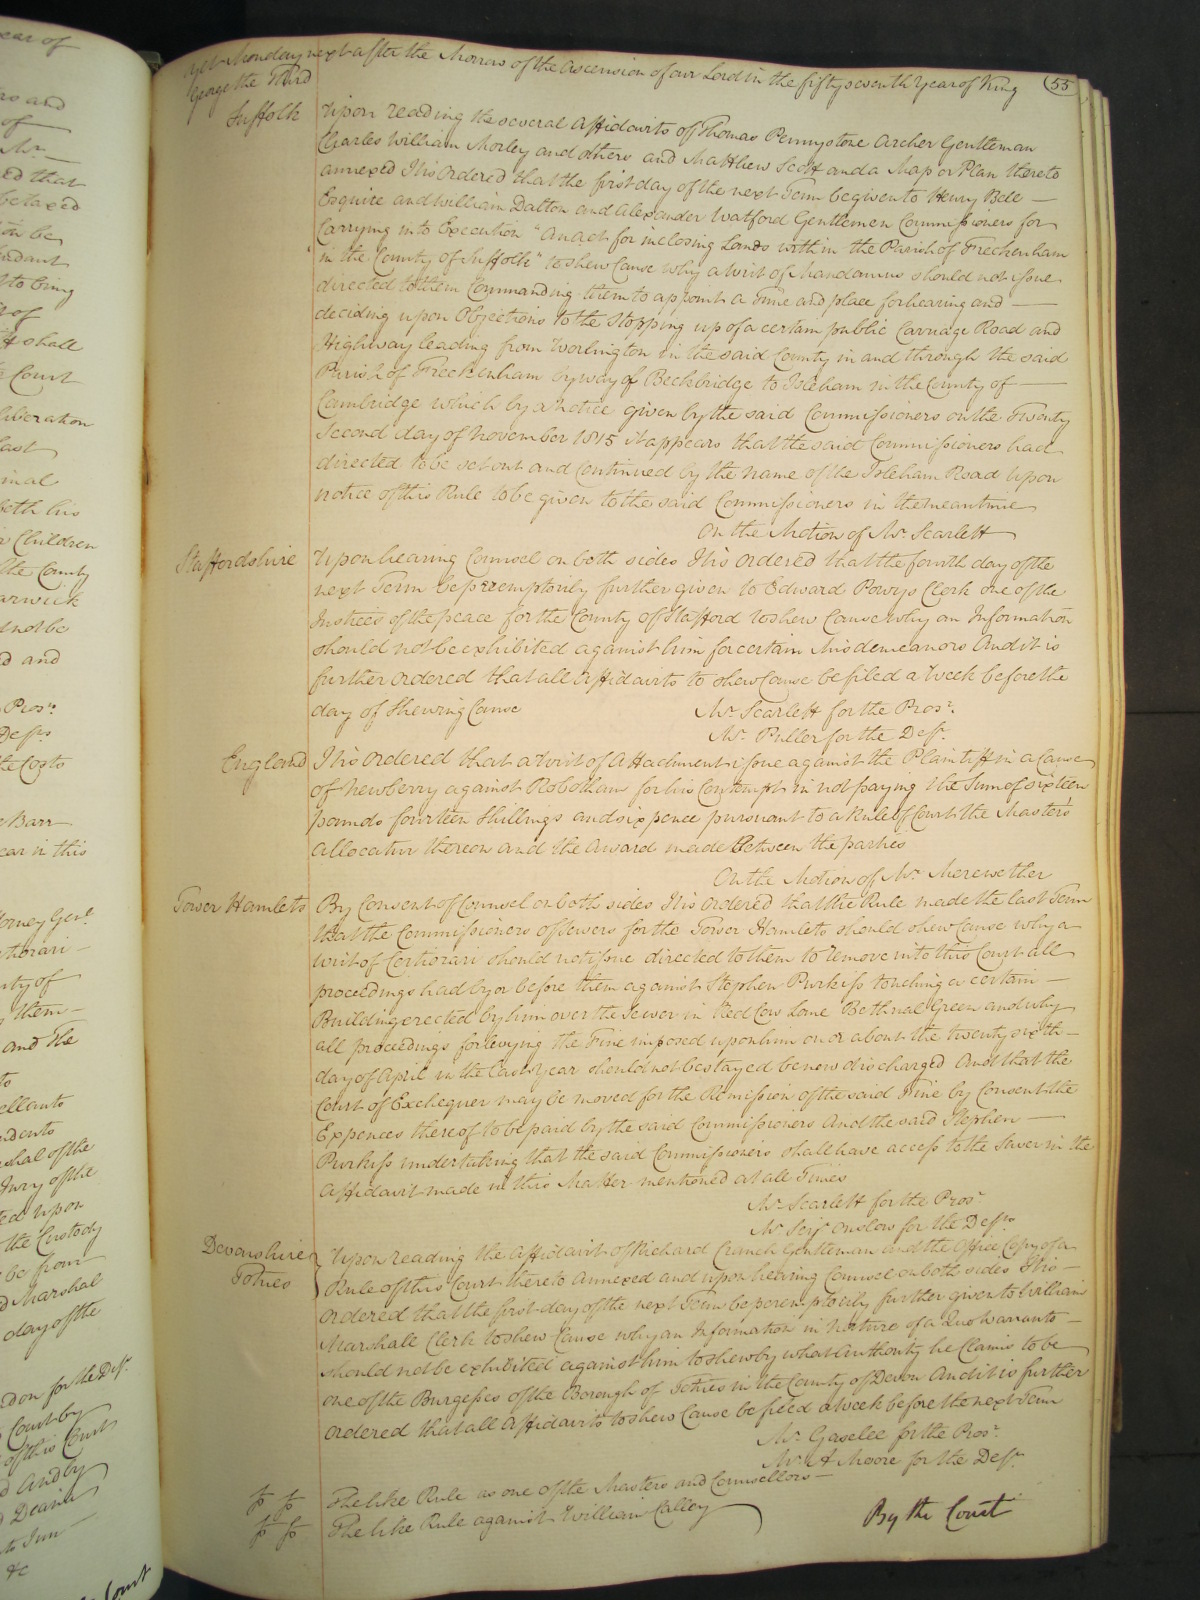 Yet Monday next after the Morrow of the Ascension of our Lord in the fifty seventh Year of King
George the Third
55
Suffolk
Upon reading the several Affidavits of Thomas Pennystone Archer Gentleman
Charles William Morley and others and Matthew Scott and a Map or Plan thereto
annexed It is Ordered that the first day of the next Term be given to Henry Bele —
Esquire and William Dalton and Alexander Watford Gentlemen Commissioners for
Carrying into Execution "An Act for inclosing Lands within the Parish of Freckenham
in the County of Suffolk" to shew Cause why a Writ of Mandamus should not issue
directed to them Commanding them to appoint a Time and place for hearing and —
deciding upon Objections to the Stopping up of a certain public Carriage Road and
Highway leading from Worlington in the said County in and through the said
Parish of Freckenham by way of Beckbridge to Isleham in the County of —
Cambridge which by a Notice given by the said Commissioners on the Twenty
Second day of November 1815 it appears that the said Commissioners had
directed to be set out and Continued by the name of the Isleham Road Upon
notice of this Rule to be given to the said Commissioners in the meantime
On the Motion of Mr. Scarlett
Staffordshire
Upon hearing Counsel on both sides It is ordered that the fourth day of the
next Term be peremptorily further given to Edward Powys Clerk one of the
Justices of the peace for the County of Stafford to shew Cause why an Information
should not be exhibited against him for certain Misdemeanors And it is
further ordered that all Affidavits to shew Cause be filed a Week before the
day of Shewing Cause
Mr. Scarlett for the Prosr.
Mr. Puller for the Deft.
England
It is ordered that a Writ of Attachment issue against the Plaintiff in a Cause
of Newberry against Robotham for his Contempt in not paying the Sum of sixteen
pounds fourteen Shillings and six pence pursuant to a Rule of Court the Master's
allocatur thereon and the Award made between the parties
On the Motion of Mr. Merewether
Tower Hamlets
By Consent of Counsel on both sides It is ordered that the Rule made the last Term
that the Commissioners of Sewers for the Tower Hamlets should shew Cause why a
Writ of Certiorari should not issue directed to them to remove into this Court all
proceedings had by or before them against Stephen Purkiss touching a certain —
Building erected by him over the Sewer in Red Cow Lane Bethnal Green and why
all proceedings for levying the Fine imposed upon him on or about the twenty sixth —
day of April in the last Year should not be stayed be now discharged And that the
Court of Exchequer may be moved for the Remission of the said Fine by Consent the
Expences thereof to be paid by the said Commissioners And the said Stephen —
Purkiss undertaking that the said Commissioners shall have access to the Sewer in the
Affidavit made in this Matter mentioned at all Times
Mr. Scarlett for the Prosr.
Mr. Serjt. Onslow for the Defts.
Devonshire
Totnes
Upon reading the Affidavit of Richard Crunch Gentleman and the Office Copy of a
Rule of this Court thereto Annexed and upon hearing Counsel on both sides It is —
ordered that the first day of the next Term be peremptorily further given to William
Marshall Clerk to shew Cause why an Information in Nature of a Quo Warranto —
should not be exhibited against him to shew by what Authority he Claims to be
one of the Burgesses of the Borough of Totnes in the County of Devon And it is further
ordered that all Affidavits to shew Cause be filed a Week before the next Term
Mr. Gaselee for the Prosr.
Mr. A Moore for the Deft.
The like Rule as one of the Masters and Counsellors —
The like Rule against William Calley
By the Court